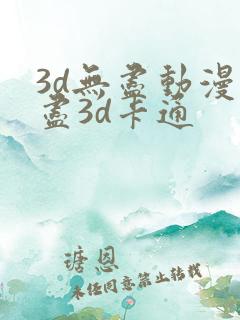 3d無盡動漫
盡3d卡通
瑭恩
未經同意禁止轉載